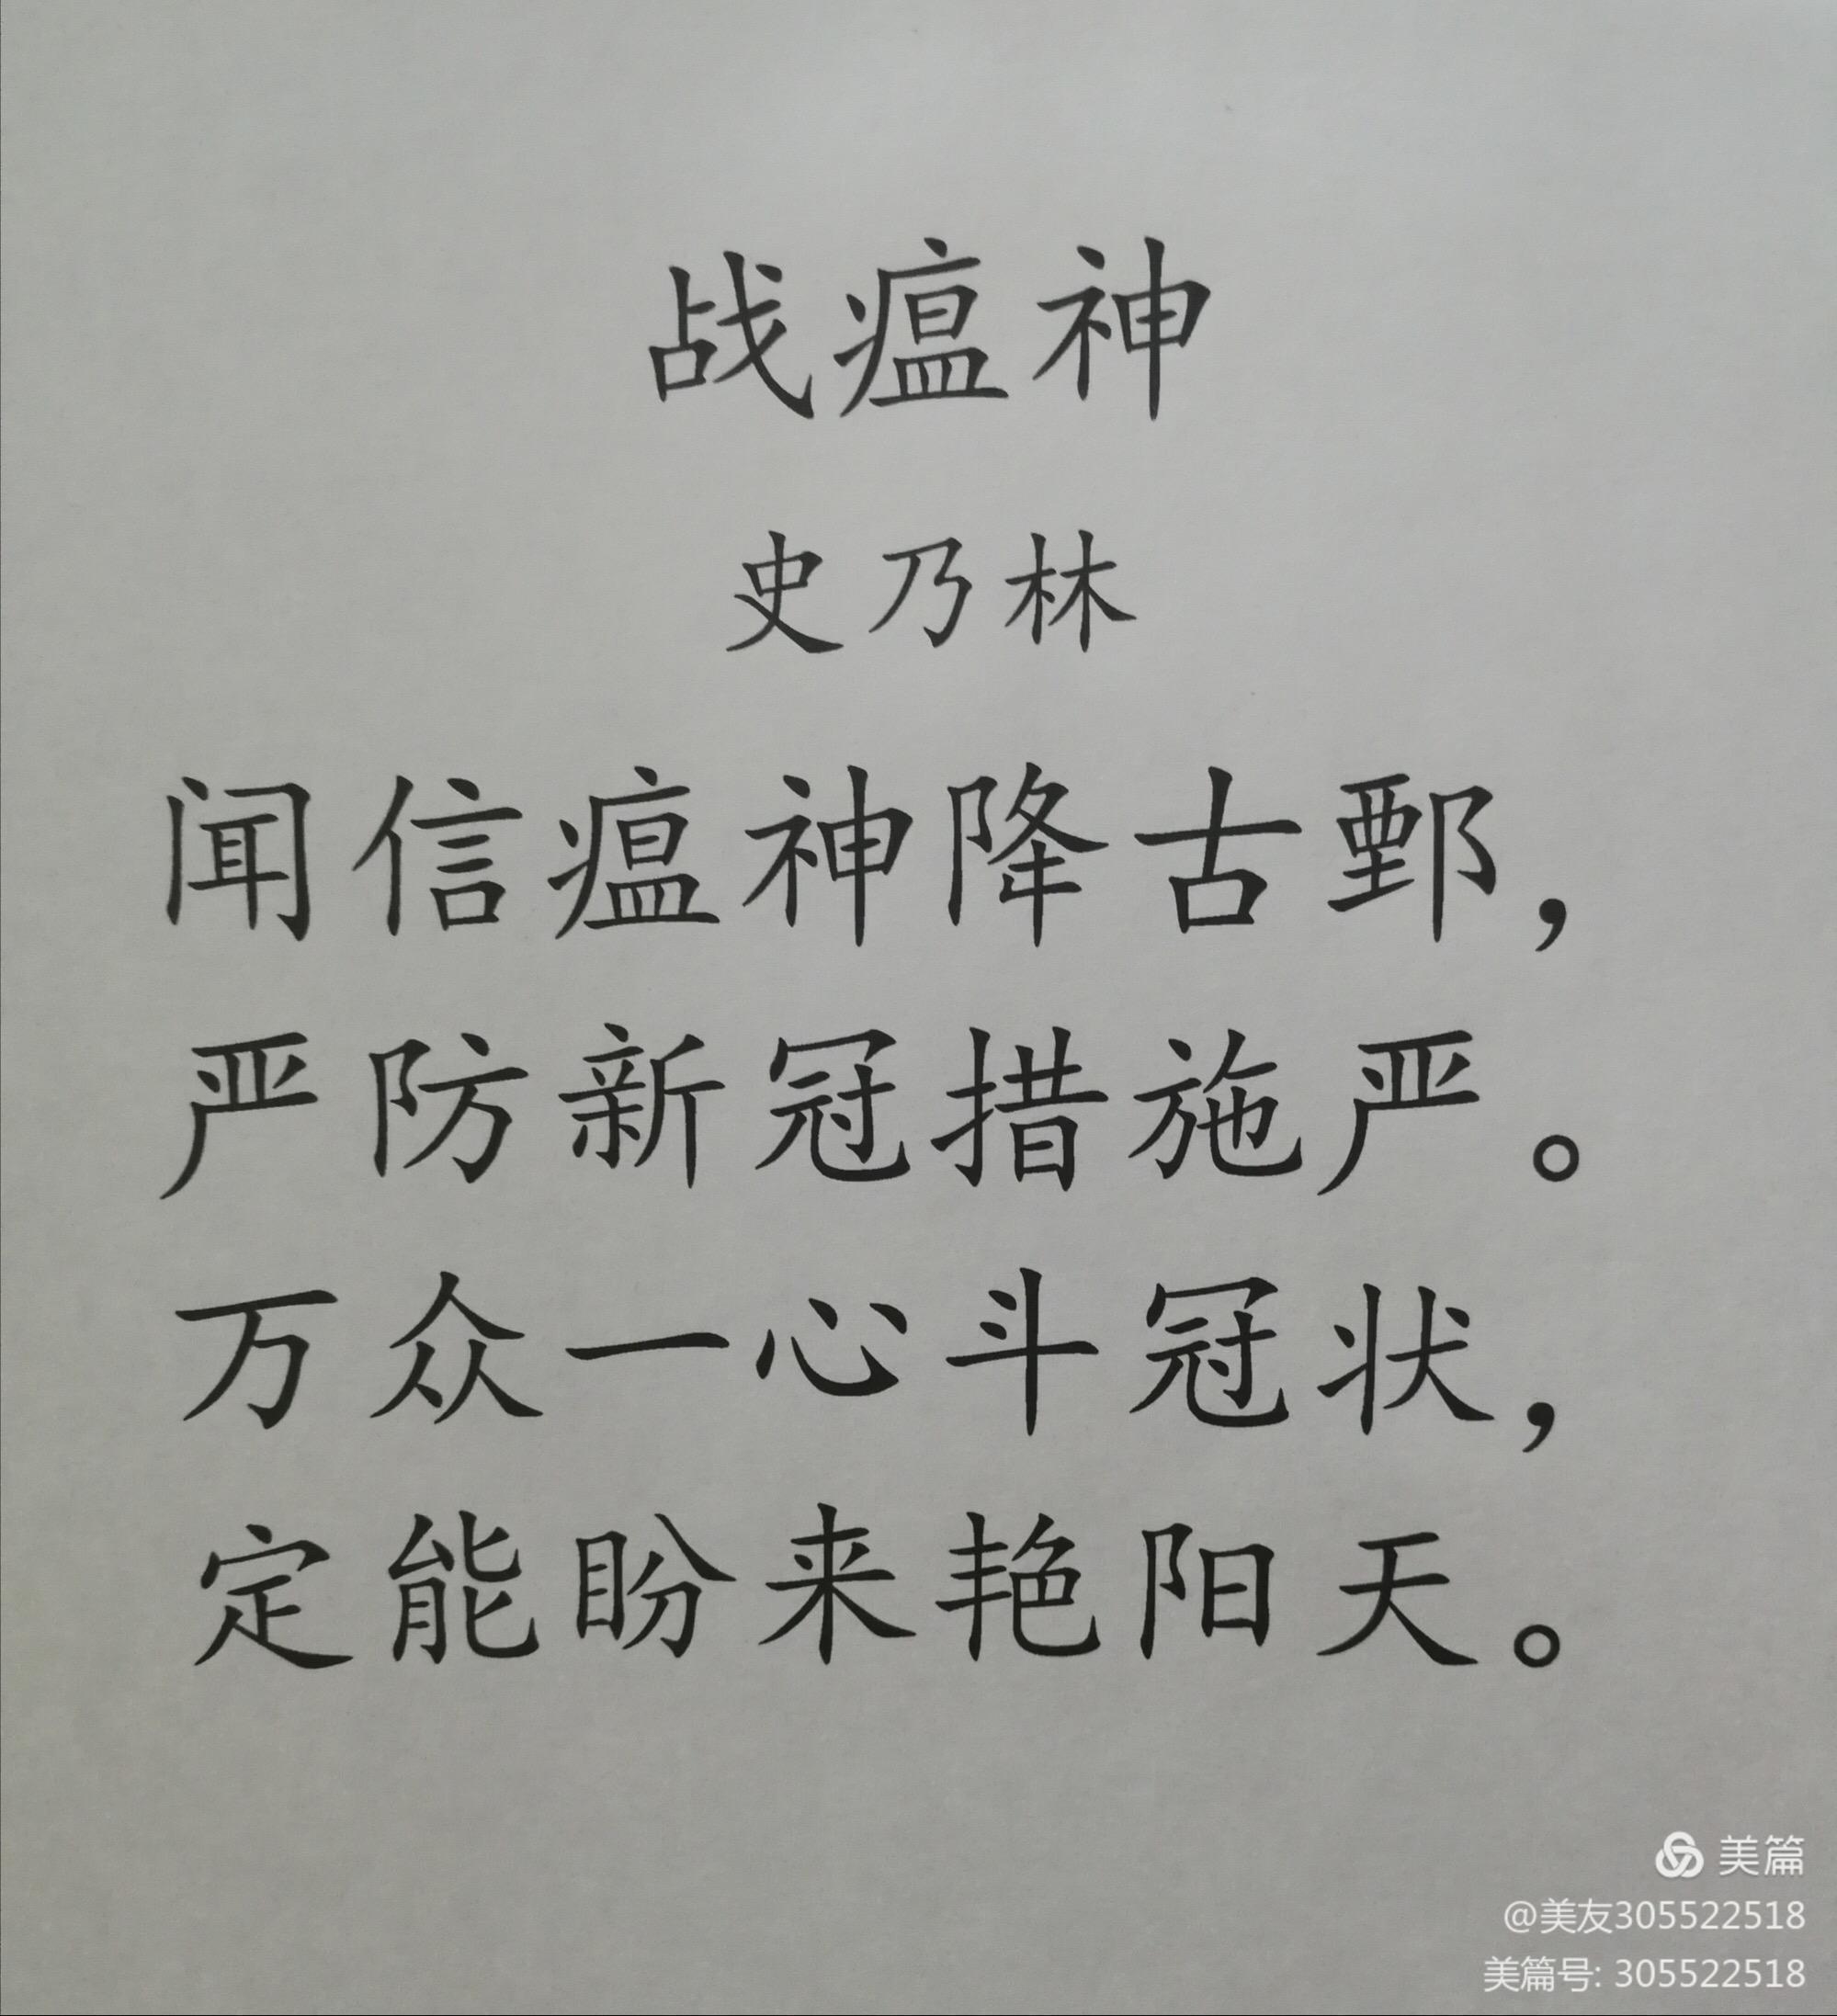 战瘟神
史乃林
闻信瘟神降古鄄，
严防新冠措施严。
万众一心斗冠状，
定能盼来艳阳天。
美篇
@美友305522518
美篇号: 305522518